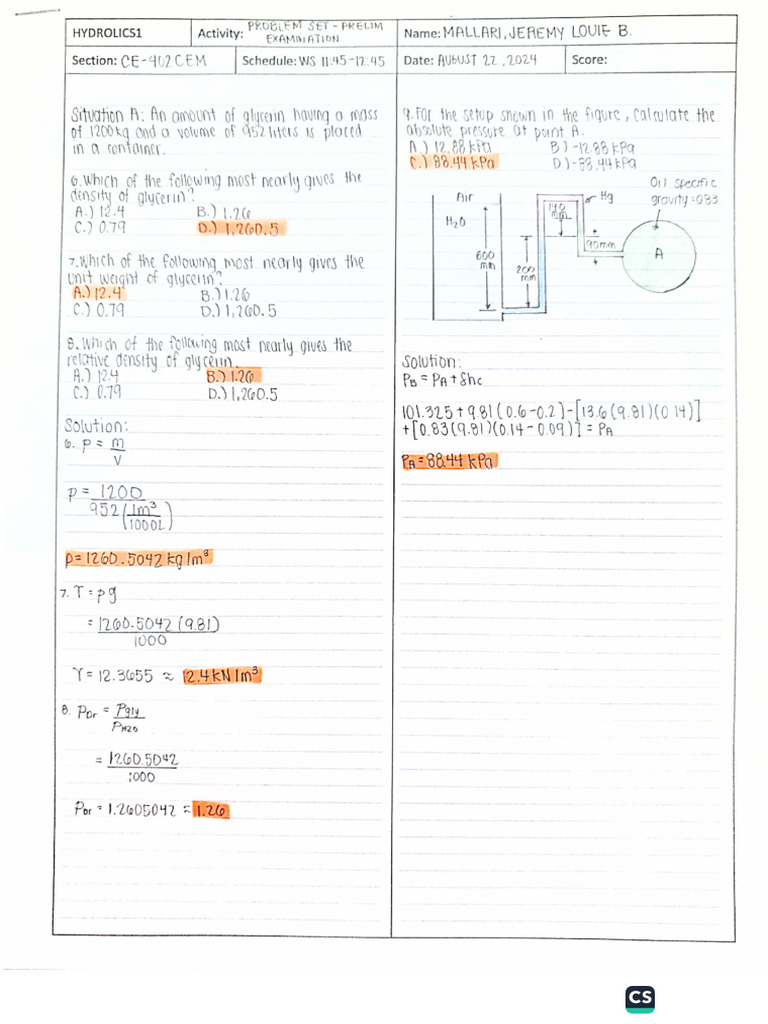 HYDROLICS1
Activity: PROBLEM SET - PRELIM
EXAMINATION
Name: MALLARI, JEREMY LOUIE B.
Section: CE-402CEM
Schedule: WS 11:45-12:45
Date: AUGUST 22, 2024
Score:
Situation A: An amount of glycerin having a mass
of 1200kg and a volume of 952 liters is placed
in a container.
6. Which of the following most nearly gives the
density of glycerin?
A.) 12.4 B.) 1.26
C.) 0.79 D.) 1,260.5
7. Which of the following most nearly gives the
unit weight of glycerin?
A.) 12.4 B.) 1.26
C.) 0.79 D.) 1,260.5
8. Which of the following most nearly gives the
relative density of glycerin.
A.) 12.4 B.) 1.26
C.) 0.79 D.) 1,260.5
Solution:
6. ρ = m
V
ρ = 1200
952 (1m³
1000L)
ρ = 1260.5042 kg/m³
7. γ = ρg
= 1260.5042 (9.81)
1000
γ = 12.3655 ≈ 12.4 kN/m³
8. ρDr = ρgly
ρH2O
= 1260.5042
1000
ρDr = 1.2605042 ≈ 1.26
9. For the setup shown in the figure, calculate the
absolute pressure at point A.
A.) 12.88 kPa B.) -12.88 kPa
C.) 88.44 kPa D.) -88.44 kPa
Oil specific
gravity = 0.83
Air
Hg
H2O
140
mm
90mm
A
600
mm
200
mm
Solution:
PB = PA + δhc
101.325 + 9.81 (0.6 - 0.2) - [13.6 (9.81)(0.14)]
+ [0.83(9.81)(0.14 - 0.09)] = PA
PA = 88.44 kPa
CS